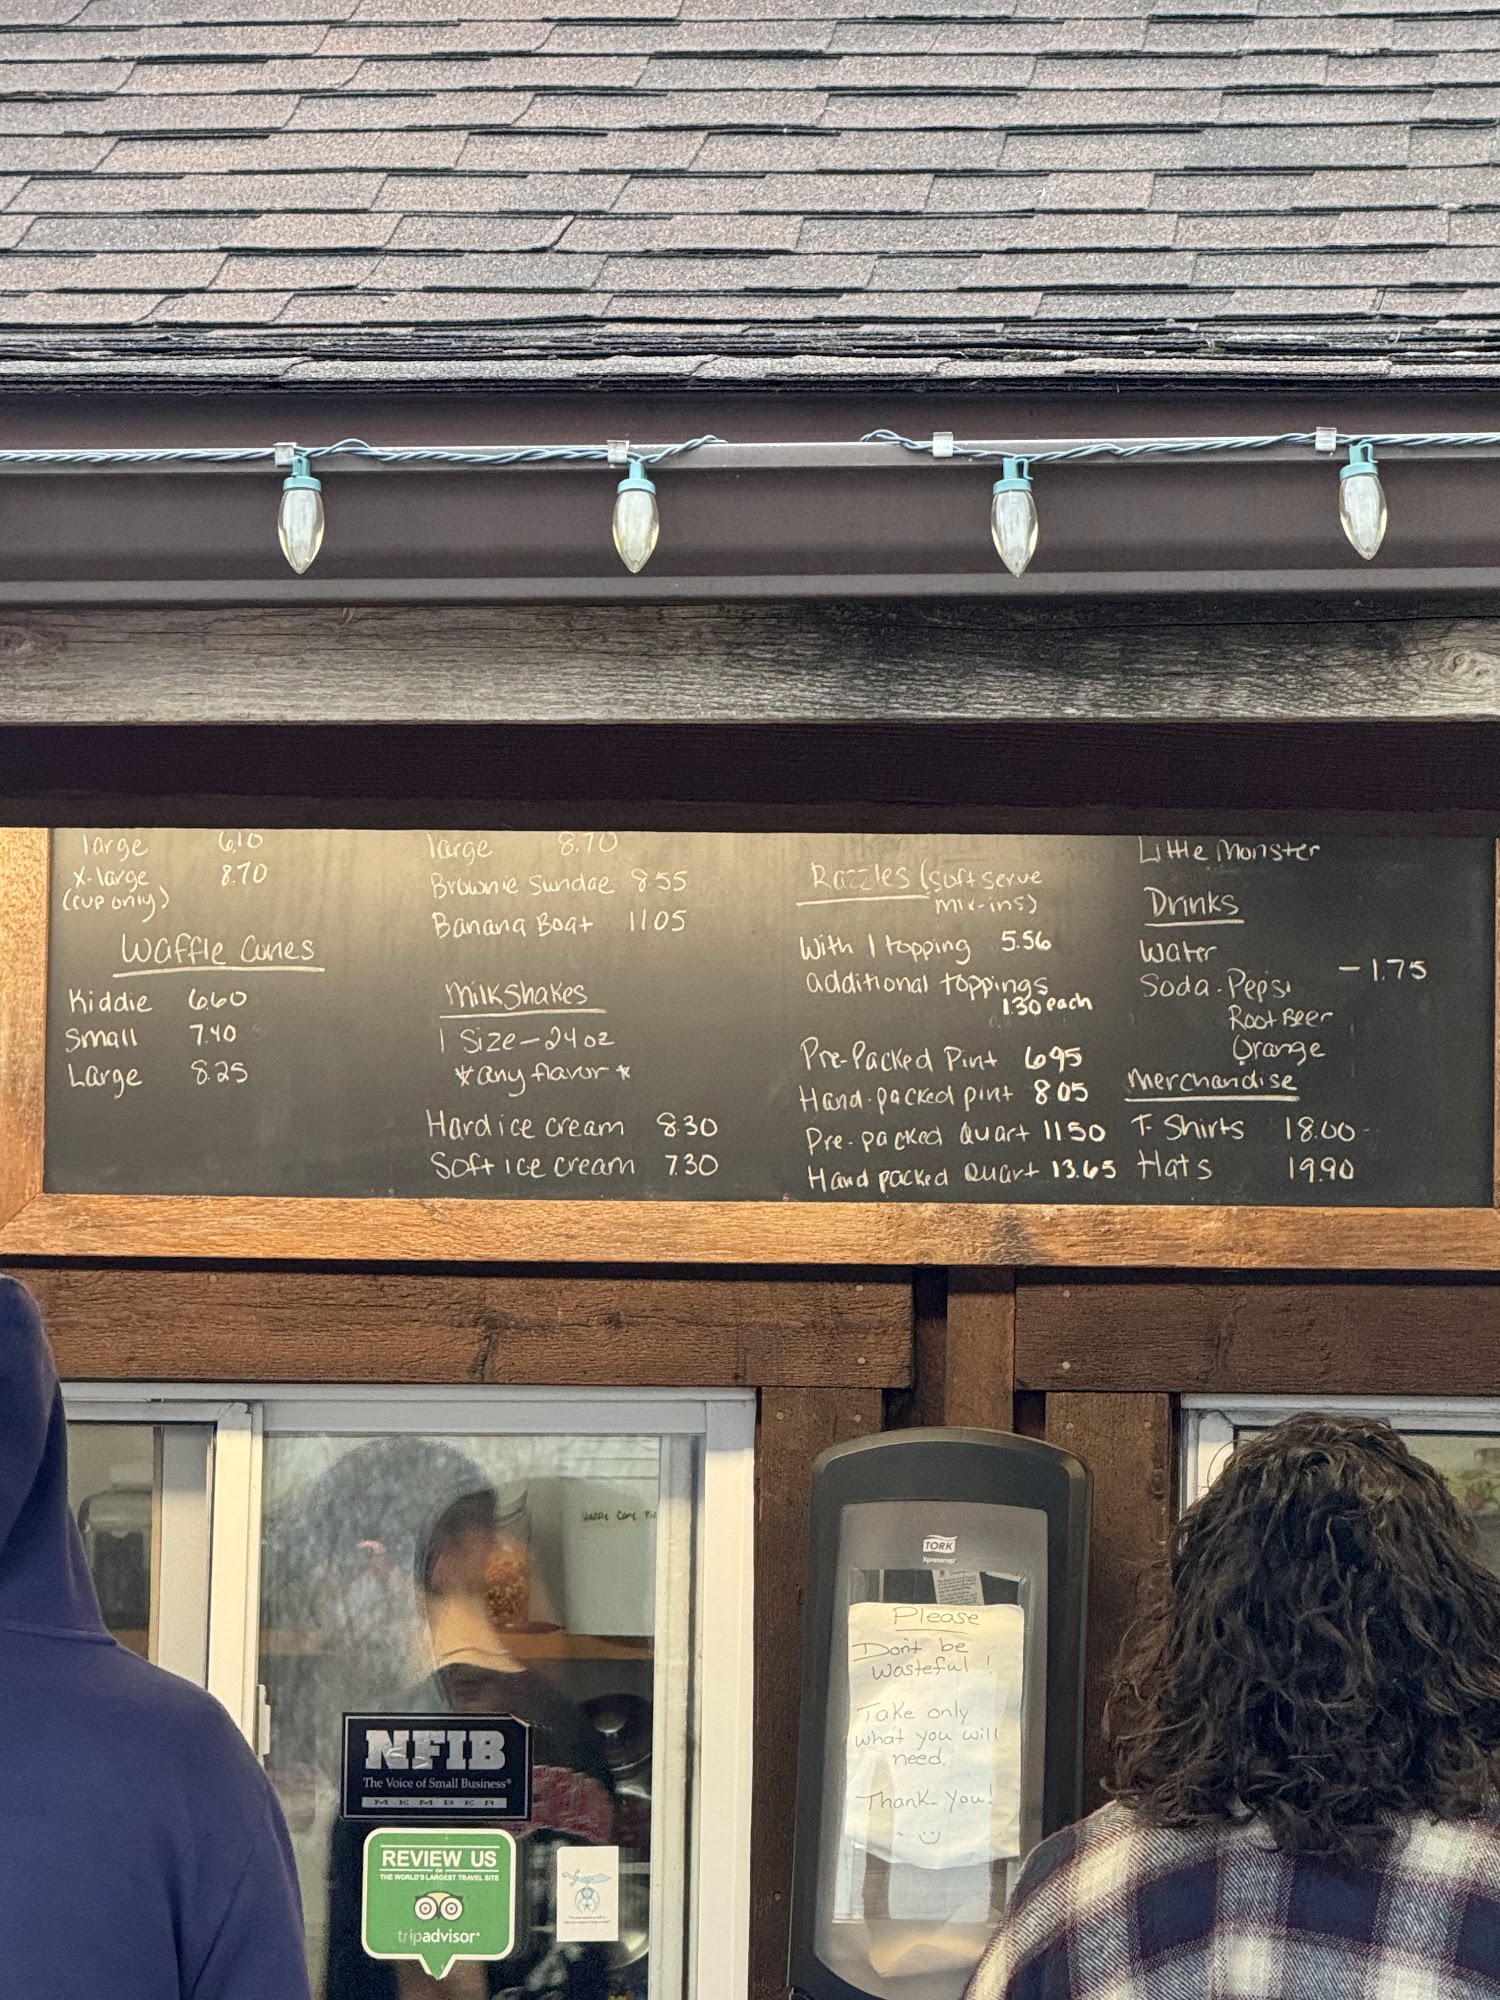 large 6.10
x-large 8.70
(cup only)
Waffle Cones
Kiddie 6.60
Small 7.40
Large 8.25
large 8.70
Brownie Sundae 8.55
Banana Boat 11.05
Milkshakes
1 Size - 24oz
*any flavor*
Hard ice cream 8.30
Soft ice cream 7.30
Razzles (Soft serve
mix-ins)
With 1 topping 5.56
additional toppings
1.30 each
Pre-Packed Pint 6.95
Hand-packed pint 8.05
Pre-packed Quart 11.50
Hand packed Quart 13.65
Little Monster
Drinks
Water
Soda-Pepsi - 1.75
Root Beer
Orange
Merchandise
T-Shirts 18.00
Hats 19.90
Waffle Cone
TORK
Xpressnap
Please
Don't be
wasteful!
Take only
what you will
need.
Thank-you!
NFIB
The Voice of Small Business®
MEMBER
REVIEW US
ON
THE WORLD'S LARGEST TRAVEL SITE
tripadvisor®